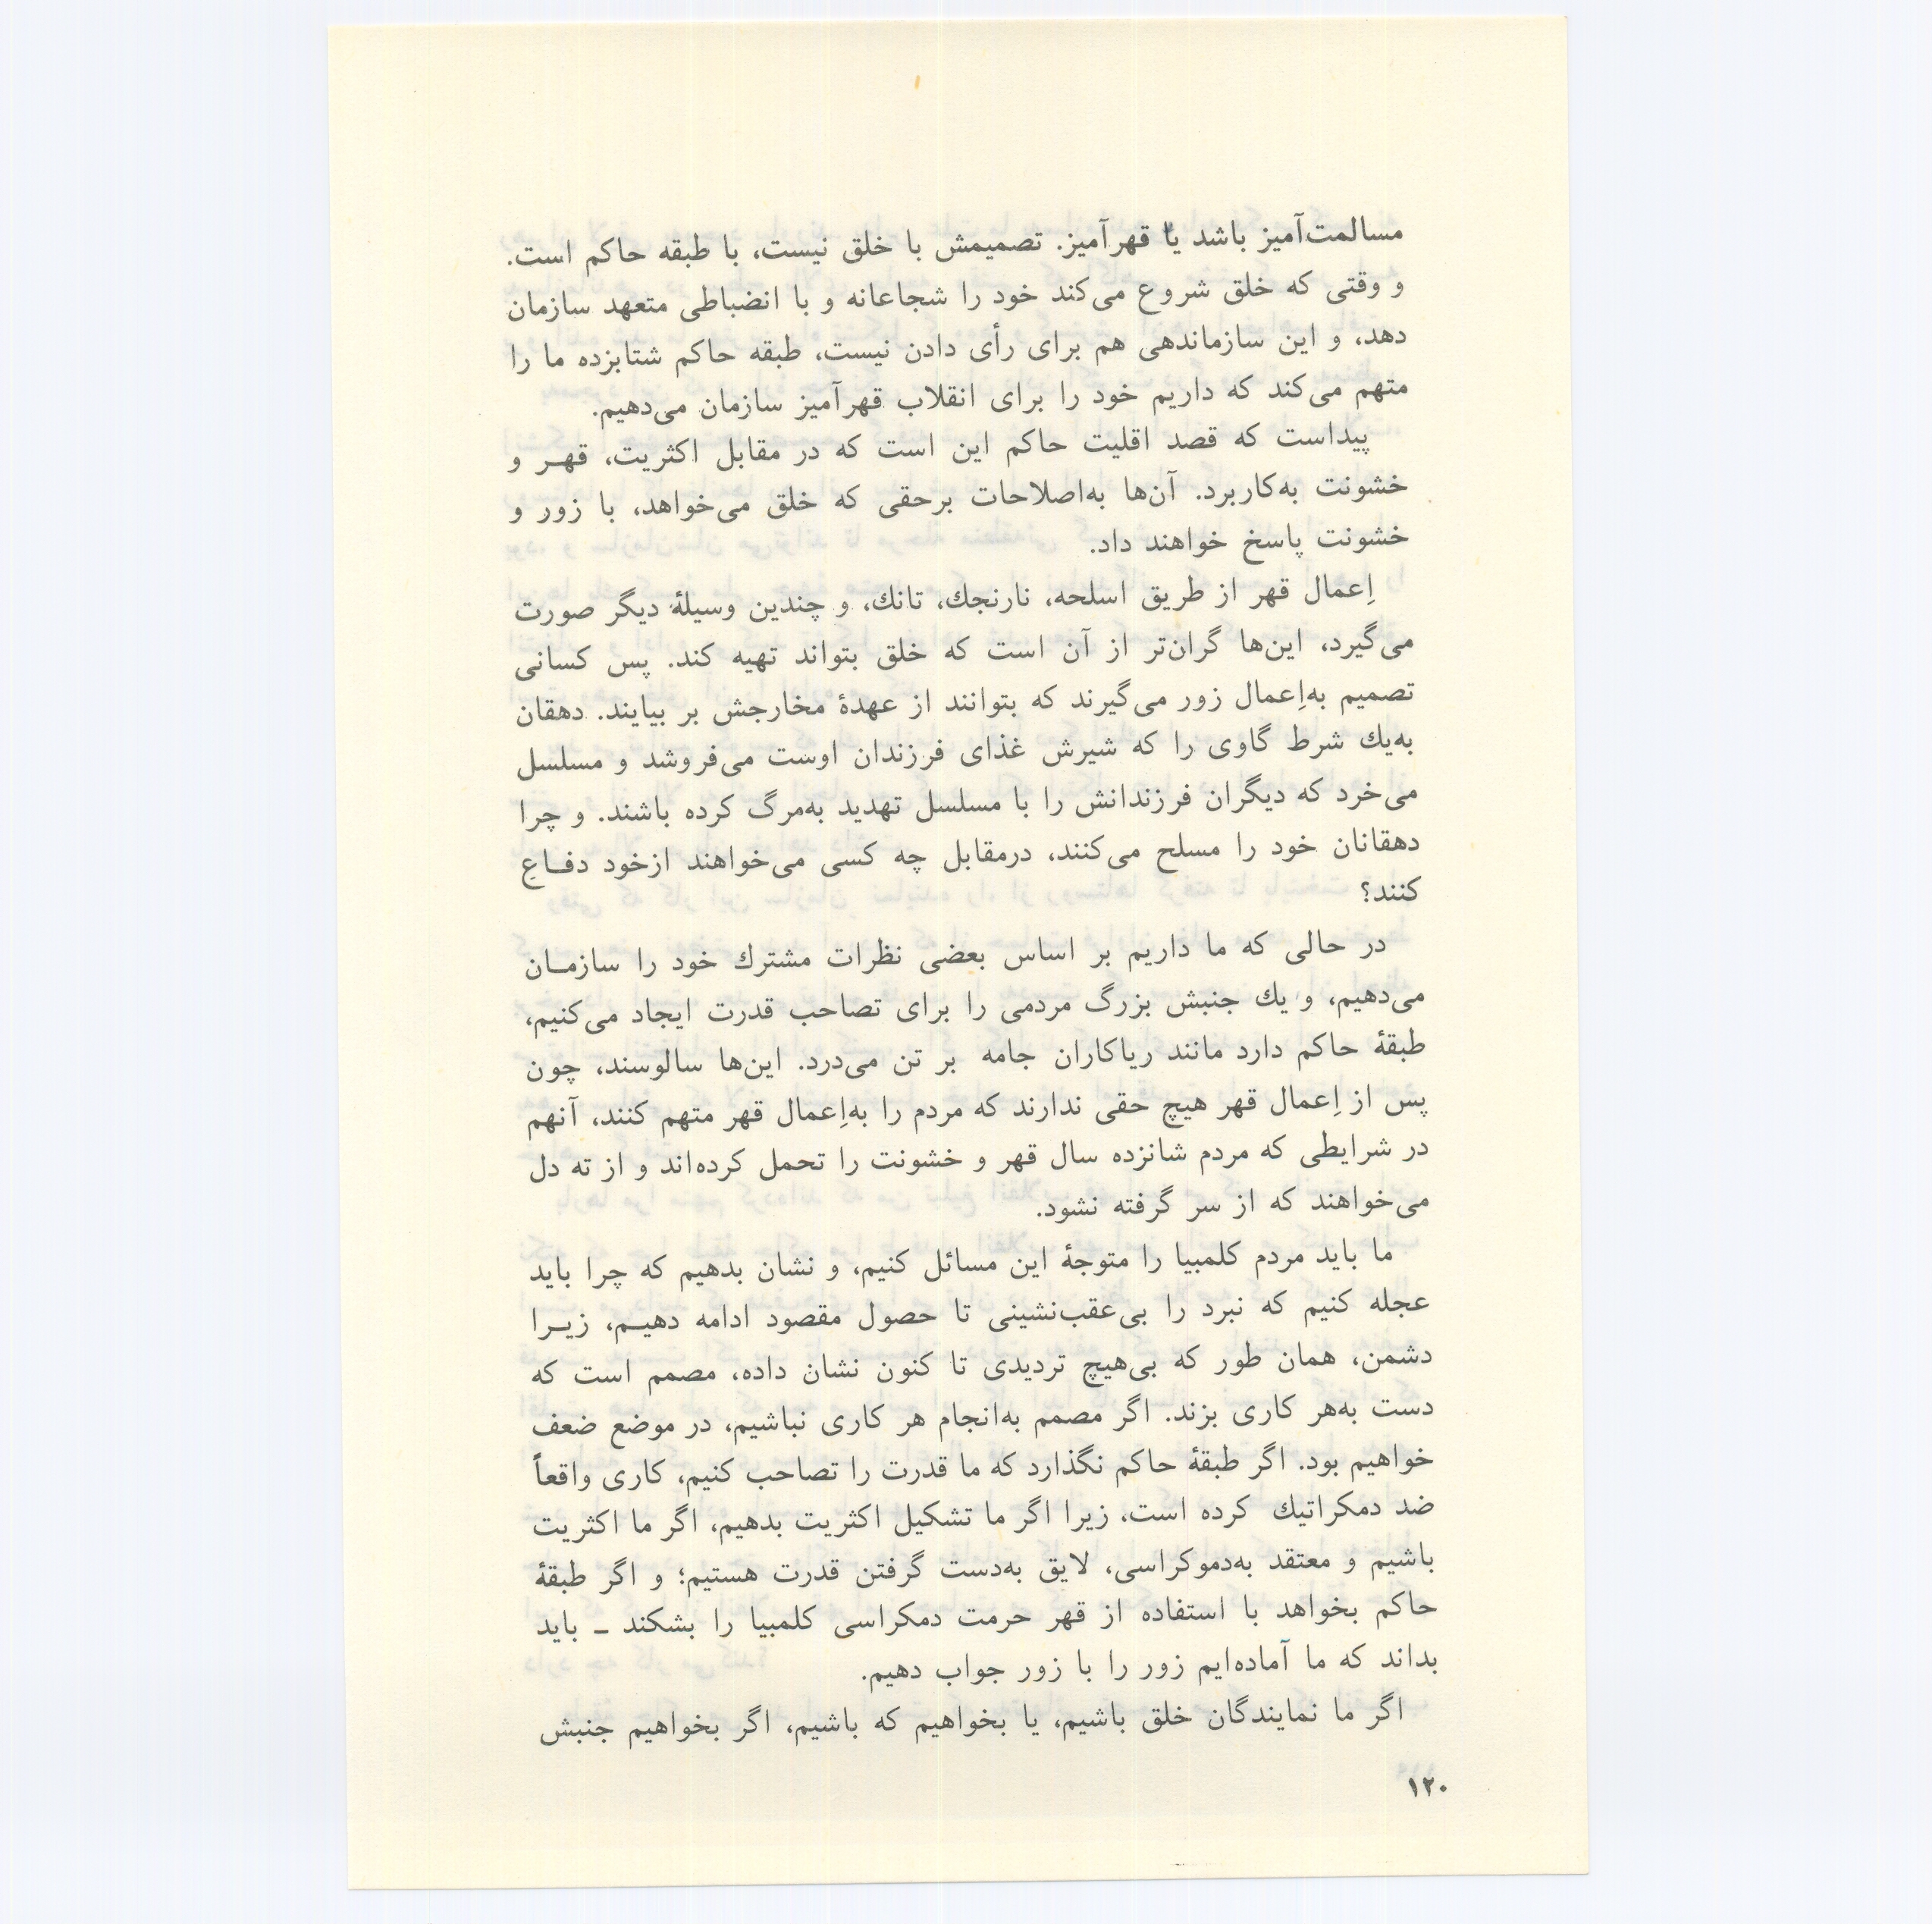 مسالمت‌آمیز باشد یا قهرآمیز. تصمیمش با خلق نیست، با طبقه حاکم است.
و وقتی که خلق شروع می‌کند خود را شجاعانه و با انضباطی متعهد سازمان
دهد، و این سازماندهی هم برای رأی دادن نیست، طبقه حاکم شتابزده ما را
متهم می‌کند که داریم خود را برای انقلاب قهرآمیز سازمان می‌دهیم.
پیداست که قصد اقلیت حاکم این است که در مقابل اکثریت، قهـر و
خشونت به‌کاربرد. آن‌ها به‌اصلاحات برحقی که خلق می‌خواهد، با زور و
خشونت پاسخ خواهند داد.
اِعمال قهر از طریق اسلحه، نارنجك، تانك، و چندین وسیلهٔ دیگر صورت
می‌گیرد، این‌ها گران‌تر از آن است که خلق بتواند تهیه کند. پس کسانی
تصمیم به‌اِعمال زور می‌گیرند که بتوانند از عهدهٔ مخارجش بر بیایند. دهقان
به‌یك شرط گاوی را که شیرش غذای فرزندان اوست می‌فروشد و مسلسل
می‌خرد که دیگران فرزندانش را با مسلسل تهدید به‌مرگ کرده باشند. و چرا
دهقانان خود را مسلح می‌کنند، درمقابل چه کسی می‌خواهند ازخود دفـاع
کنند؟
در حالی که ما داریم بر اساس بعضی نظرات مشترك خود را سازمـان
می‌دهیم، و یك جنبش بزرگ مردمی را برای تصاحب قدرت ایجاد می‌کنیم،
طبقهٔ حاکم دارد مانند ریاکاران جامه بر تن می‌درد. این‌ها سالوسند، چون
پس از اِعمال قهر هیچ حقی ندارند که مردم را به‌اِعمال قهر متهم کنند، آنهم
در شرایطی که مردم شانزده سال قهر و خشونت را تحمل کرده‌اند و از ته دل
می‌خواهند که از سر گرفته نشود.
ما باید مردم کلمبیا را متوجهٔ این مسائل کنیم، و نشان بدهیم که چرا باید
عجله کنیم که نبرد را بی‌عقب‌نشینی تا حصول مقصود ادامه دهیـم، زیـرا
دشمن، همان طور که بی‌هیچ تردیدی تا کنون نشان داده، مصمم است که
دست به‌هر کاری بزند. اگر مصمم به‌انجام هر کاری نباشیم، در موضع ضعف
خواهیم بود. اگر طبقهٔ حاکم نگذارد که ما قدرت را تصاحب کنیم، کاری واقعاً
ضد دمکراتیك کرده است، زیرا اگر ما تشکیل اکثریت بدهیم، اگر ما اکثریت
باشیم و معتقد به‌دموکراسی، لایق به‌دست گرفتن قدرت هستیم؛ و اگر طبقهٔ
حاکم بخواهد با استفاده از قهر حرمت دمکراسی کلمبیا را بشکند ــ باید
بداند که ما آماده‌ایم زور را با زور جواب دهیم.
اگر ما نمایندگان خلق باشیم، یا بخواهیم که باشیم، اگر بخواهیم جنبش
۱۲۰